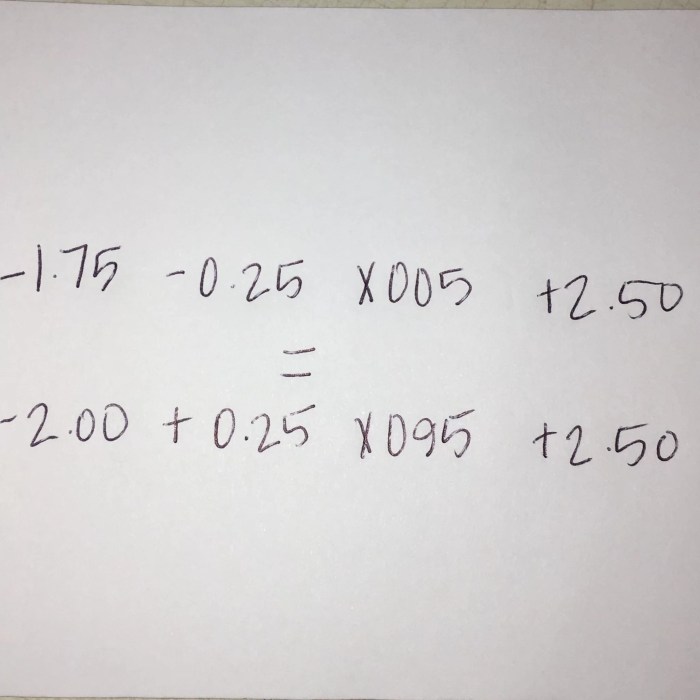 -1.75 -0.25 x005 +2.50
=
-2.00 +0.25 x095 +2.50